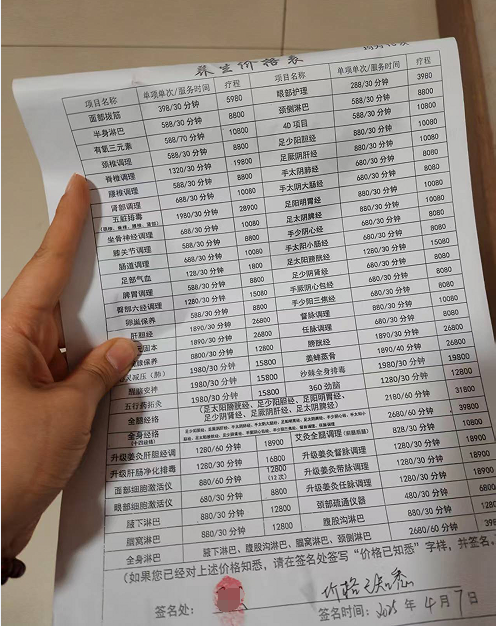 养生价格表
项目名称 单项单次/服务时间 疗程 项目名称 单项单次/服务时间 疗程
面部拨筋 398/30 分钟 5980 眼部护理 288/30 分钟 3980
半身淋巴 588/30 分钟 8800 颈侧淋巴 588/30 分钟 8800
有氧三元素 588/70 分钟 10800 4D 项目 588/30 分钟 10800
颈椎调理 588/30 分钟 8800 足少阳胆经 880/30 分钟 8800
脊椎调理 1320/30 分钟 19800 足厥阴肝经 680/30 分钟 10080
腰椎调理 588/30 分钟 8800 手太阴肺经 680/30 分钟 8080
肾部调理 688/30 分钟 10080 手太阴大肠经 680/30 分钟 8080
五脏排毒 1980/30 分钟 28900 足阳明胃经 680/30 分钟 8080
坐骨神经调理 688/30 分钟 10080 足太阴脾经 680/30 分钟 8080
膝关节调理 588/30 分钟 8800 手少阴心经 680/30 分钟 8080
肠道调理 688/30 分钟 10080 手太阳小肠经 680/30 分钟 8080
足部气血 128/30 分钟 1800 足太阳膀胱经 1280/30 分钟 15080
脾胃调理 588/30 分钟 8800 足少阴肾经 680/30 分钟 8080
臀部六经调理 1280/30 分钟 15080 手厥阴心包经 680/30 分钟 8080
卵巢保养 588/30 分钟 8800 手少阳三焦经 680/30 分钟 8080
肝胆经 1890/30 分钟 26800 督脉调理 680/30 分钟
固本 1890/30 分钟 26800 任脉调理 680/30 分钟
腰保养 8800/30 分钟 12800 膀胱经 1890/30 分钟 26800
减压（肺） 1980/30 分钟 15800 姜蜂蒸骨 1890/40 分钟 26800
安神 1980/30 分钟 15800 沙妹全身排毒 1980/30 分钟 19800
五行药拓灸 1980/30 分钟 15800 360 劲脑 1280/30 分钟 12800
全腿经络 （足太阳膀胱经、足少阳胆经、足阳明胃经、足少阴肾经、足厥阴肝经、足太阴脾经） 2180/60 分钟 31800
全身经络 2680/60 分钟 39800
升级姜灸肝胆经调 1280/60 分钟 18900 艾灸全腿调理 828/30 分钟 10800
升级肝肠净化排毒 1280/30 分钟 16800 升级姜灸督脉调理 1280/30 分钟 18900
面部细胞激活仪 880/60 分钟 12800 （12 次） 升级姜灸带脉调理 1280/30 分钟 18900
眼部细胞激活仪 680/30 分钟 8800 升级姜灸任脉调理 1280/30 分钟 18900
腋下淋巴 880/30 分钟 12800 颈部疏通仪器 480/30 分钟
腘窝淋巴 880/30 分钟 12800 腹股沟淋巴 880/30 分钟
全身淋巴 腋下淋巴、腹股沟淋巴、腘窝淋巴、颈侧淋巴 2680/60 分钟
（如果您已经对上述价格知悉，请在签名处签写“价格已知悉”字样，并签名。
价格已知悉
签名处： 签名时间：2025 年 4 月 7 日